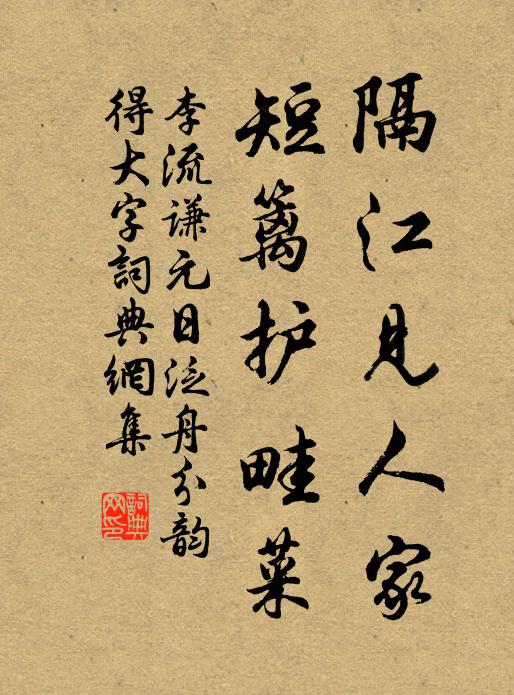 隔江见人家
短篱护畦菜
李流谦元日泛舟分韵
得大字詞典網集
詞典网印